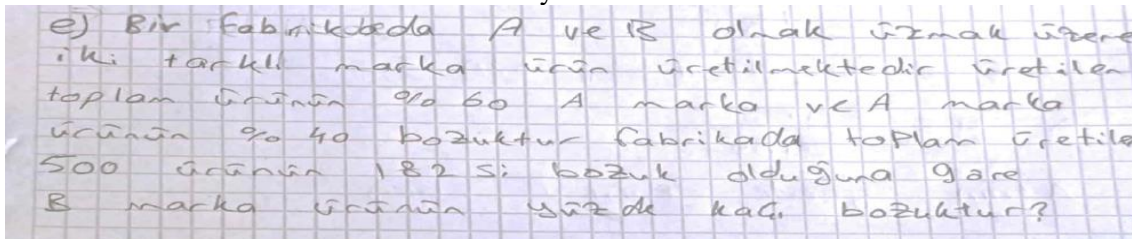 e) Bir fabrikada A ve B olmak üzmak üzere
iki farklı marka ürün üretilmektedir üretilen
toplam ürünün %60 A marka ve A marka
ürünün %40 bozuktur fabrikada toplam üretile
500 ürünün 182 si bozuk olduğuna göre
B marka ürünün yüzde kaçı bozuktur?